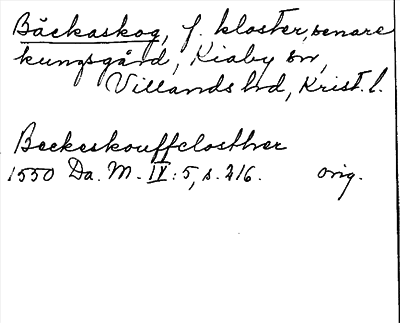 Bäckaskog, f. kloster, senare
kungsgård, Kiaby sn,
Villands hd, Krist. l.
Beckeskouffclosther
1550 Da. M. IV: 5, s. 216. orig.